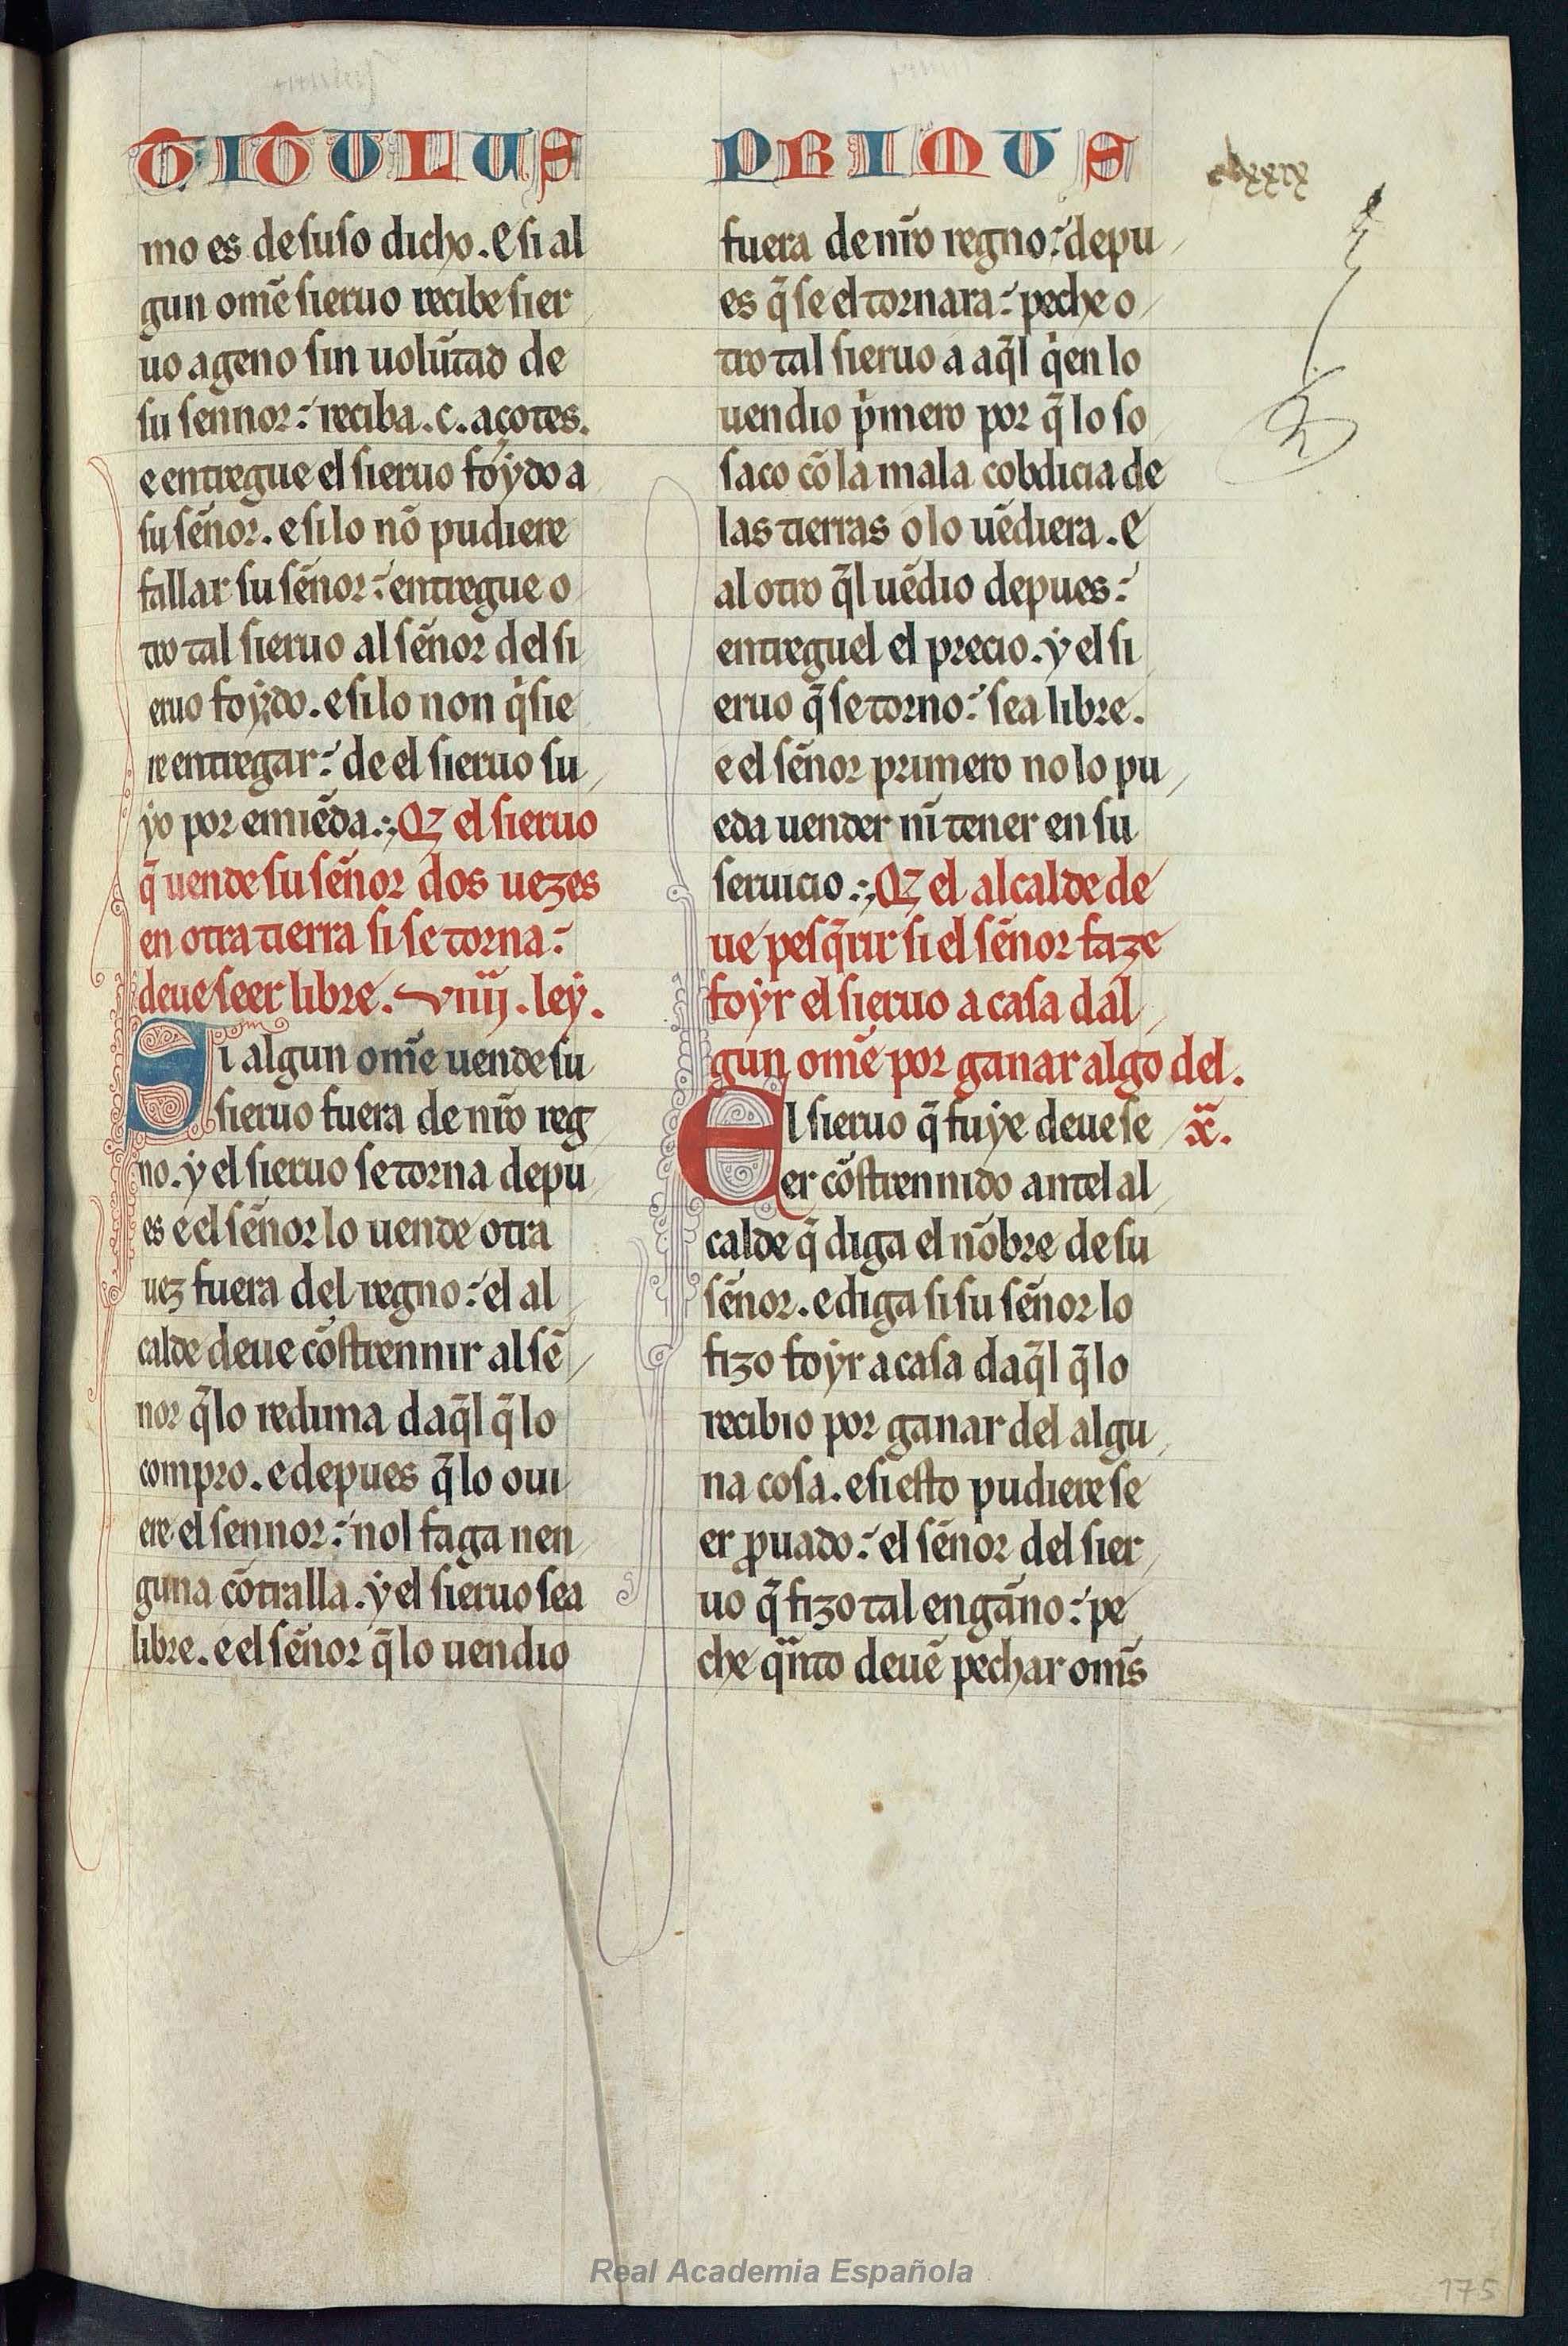 TITULUS PRIMUS
clxxix
mo es de suso dicho. E si al
gun om̅e sieruo recibe sier
uo ageno sin uolũtad de
su sennor: reciba .c. açotes.
e entregue el sieruo foẏdo a
su sen̅or. e si lo nõ pudiere
fallar su sen̅or: entregue o
tro tal sieruo al sen̅or del si
eruo foẏdo. e si lo non q̇sie
re entregar: de el sieruo su
ẏo por emiẽda. Qɀ el sieruo
q̃ uende su sen̅or dos uezes
en otra tierra si se torna:
deue seer libre. viiij. leẏ.
Si algun om̅e uende su
sieruo fuera de nr̅o reg
no. ẏ el sieruo se torna depu
es e el sen̅or lo uende otra
uez fuera del regno: el al
calde deue cõstrennir al sẽ
nor q̃ lo reduna daq̃l q̃ lo
compro. e depues q̃ lo oui
ere el sennor: nol faga nen
guna cõtralla. ẏ el sieruo sea
libre. e el sen̅or q̃ lo uendio
fuera de nr̅o regno: depu
es q̃ se el tornara: peche o
tro tal sieruo a aq̃l q̇en lo
uendio ṗmero por q̃ lo so
saco cõ la mala cobdicia de
las tierras o lo uẽdiera. E
al otro q̃l uẽdio depues:
entreguel el precio. ẏ el si
eruo q̃ se torno: sea libre.
e el sen̅or primero no lo pu
eda uender nĩ tener en su
seruicio. Qɀ el alcalde de
ue pesq̃rir si el sen̅or faze
foẏr el sieruo a casa dal
gun om̅e por ganar algo del.
El sieruo q̃ fuẏe deue se x̃.
er cõstrennido antel al
calde q̃ diga el nõbre de su
sen̅or. e diga si su sen̅or lo
fizo foẏr a casa daq̃l q̃ lo
recibio por ganar del algu
na cosa. e si esto pudiere se
er ꝓuado: el sen̅or del sier
uo q̃ fizo tal engan̅o: pe
che q̃nto deuẽ pechar om̅s
Real Academia Española
175